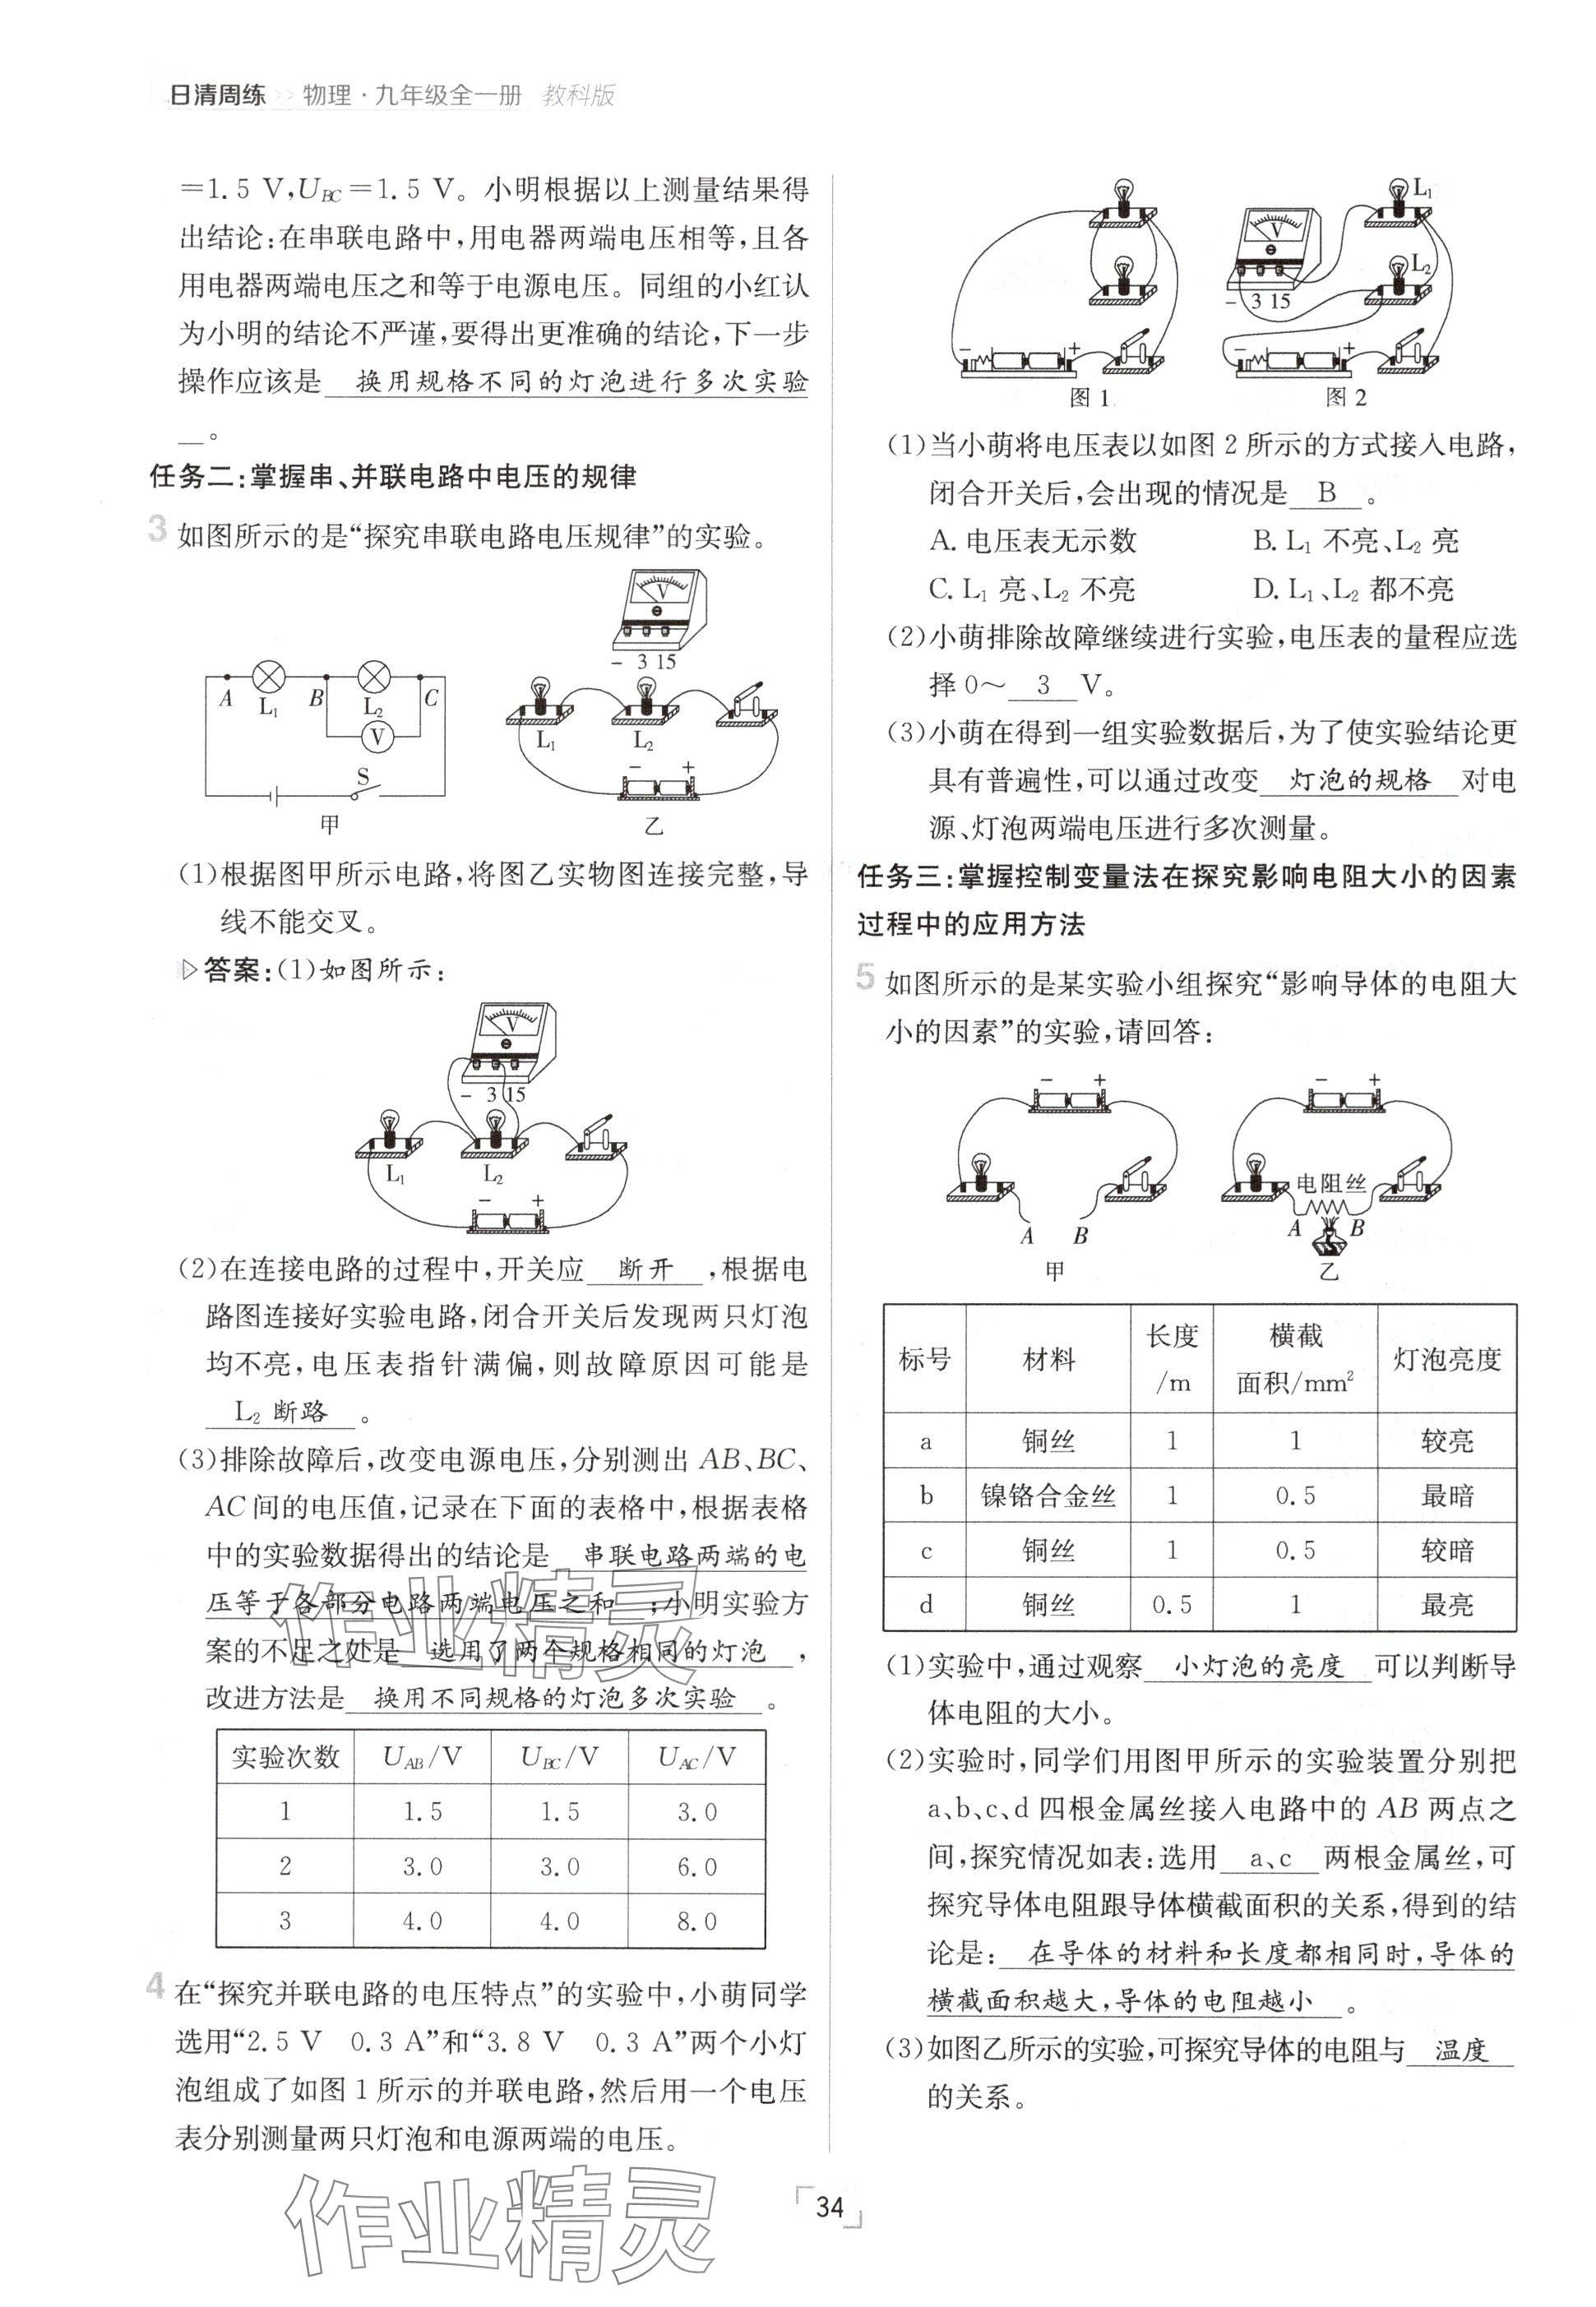 日清周练 >> 物理·九年级全一册 教科版
=1.5 V,U_BC=1.5 V。小明根据以上测量结果得
出结论:在串联电路中,用电器两端电压相等,且各
用电器两端电压之和等于电源电压。同组的小红认
为小明的结论不严谨,要得出更准确的结论,下一步
操作应该是 换用规格不同的灯泡进行多次实验
。
任务二:掌握串、并联电路中电压的规律
3 如图所示的是“探究串联电路电压规律”的实验。
V
- 3 15
A B C
L₁ L₂
V
S
甲
L₁ L₂
- +
乙
(1)根据图甲所示电路,将图乙实物图连接完整,导
线不能交叉。
▷答案:(1)如图所示:
V
- 3 15
L₁ L₂
- +
(2)在连接电路的过程中,开关应 断开 ,根据电
路图连接好实验电路,闭合开关后发现两只灯泡
均不亮,电压表指针满偏,则故障原因可能是
L₂ 断路 。
(3)排除故障后,改变电源电压,分别测出 AB、BC、
AC 间的电压值,记录在下面的表格中,根据表格
中的实验数据得出的结论是 串联电路两端的电
压等于各部分电路两端电压之和 ;小明实验方
案的不足之处是 选用了两个规格相同的灯泡 ,
改进方法是 换用不同规格的灯泡多次实验 。
实验次数 U_AB/V U_BC/V U_AC/V
1 1.5 1.5 3.0
2 3.0 3.0 6.0
3 4.0 4.0 8.0
4 在“探究并联电路的电压特点”的实验中,小萌同学
选用“2.5 V 0.3 A”和“3.8 V 0.3 A”两个小灯
泡组成了如图 1 所示的并联电路,然后用一个电压
表分别测量两只灯泡和电源两端的电压。
- +
图 1
V
- 3 15
L₁
L₂
- +
图 2
(1)当小萌将电压表以如图 2 所示的方式接入电路,
闭合开关后,会出现的情况是 B 。
A. 电压表无示数 B. L₁ 不亮、L₂ 亮
C. L₁ 亮、L₂ 不亮 D. L₁、L₂ 都不亮
(2)小萌排除故障继续进行实验,电压表的量程应选
择 0～ 3 V。
(3)小萌在得到一组实验数据后,为了使实验结论更
具有普遍性,可以通过改变 灯泡的规格 对电
源、灯泡两端电压进行多次测量。
任务三:掌握控制变量法在探究影响电阻大小的因素
过程中的应用方法
5 如图所示的是某实验小组探究“影响导体的电阻大
小的因素”的实验,请回答:
- +
A B
甲
- +
电阻丝
A B
乙
标号 材料 长度/m 横截面积/mm² 灯泡亮度
a 铜丝 1 1 较亮
b 镍铬合金丝 1 0.5 最暗
c 铜丝 1 0.5 较暗
d 铜丝 0.5 1 最亮
(1)实验中,通过观察 小灯泡的亮度 可以判断导
体电阻的大小。
(2)实验时,同学们用图甲所示的实验装置分别把
a、b、c、d 四根金属丝接入电路中的 AB 两点之
间,探究情况如表:选用 a、c 两根金属丝,可
探究导体电阻跟导体横截面积的关系,得到的结
论是: 在导体的材料和长度都相同时,导体的
横截面积越大,导体的电阻越小 。
(3)如图乙所示的实验,可探究导体的电阻与 温度
的关系。
作业精灵
作业精灵
34